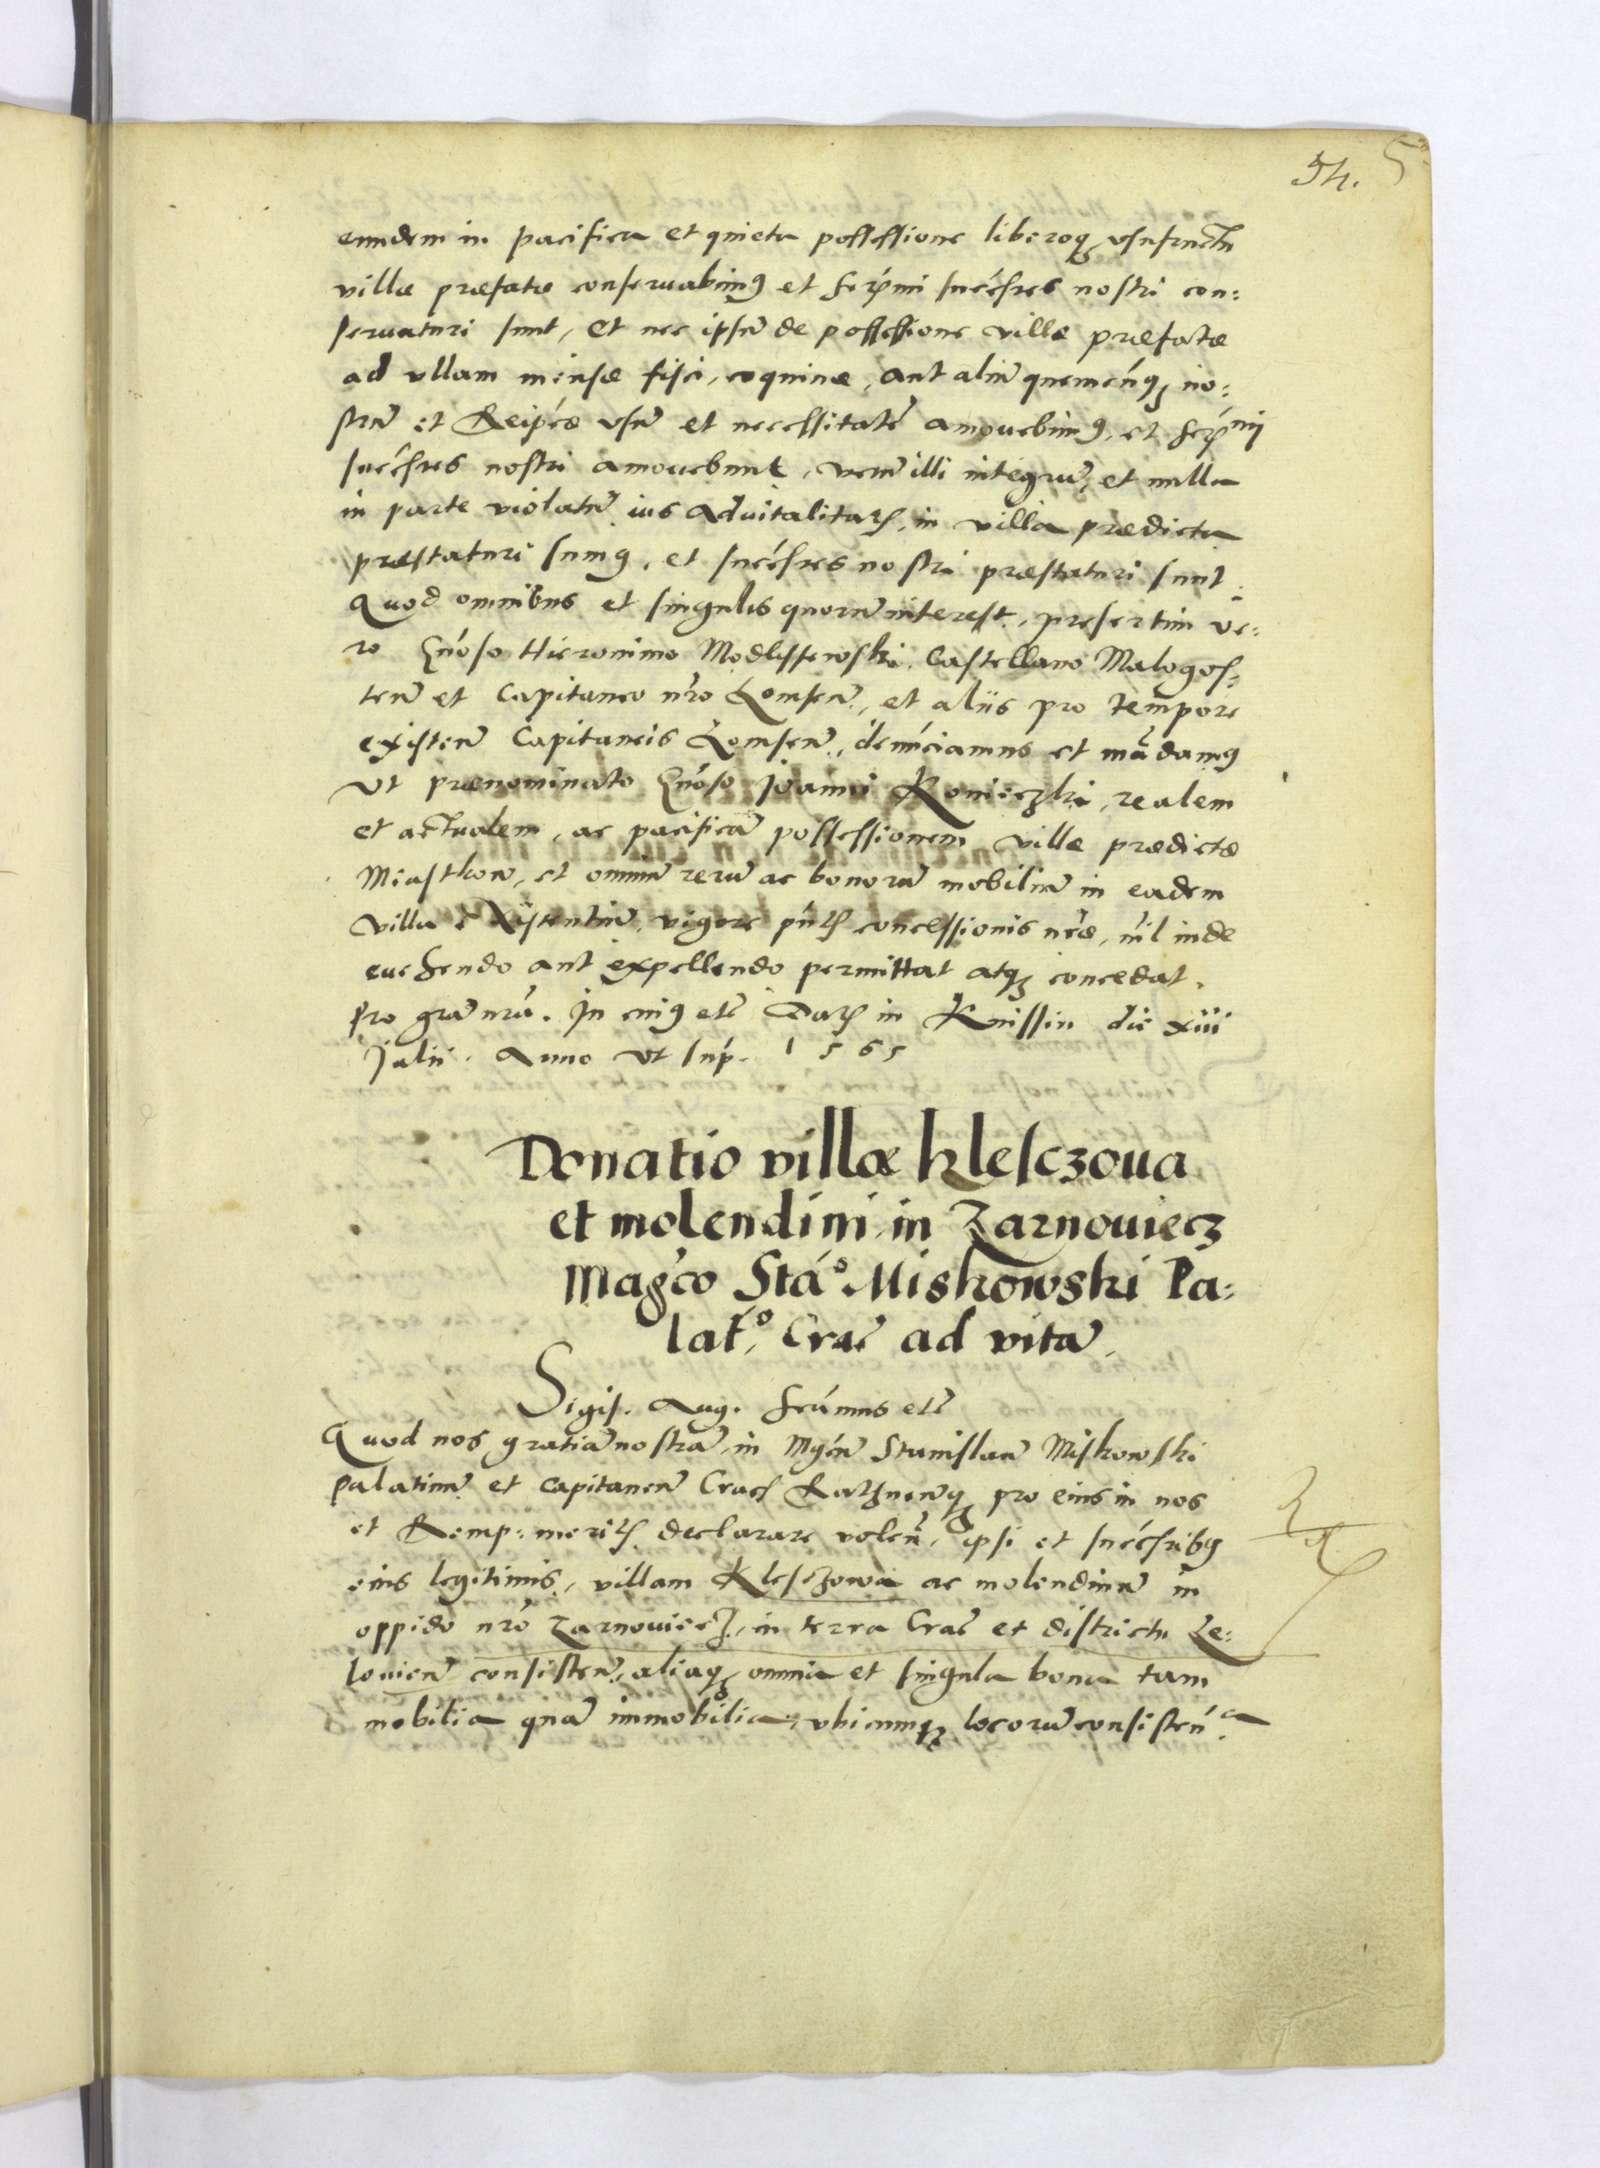 54.
eundem in pacifica et quieta possessione liberoq₃ vsufructu
villæ præfatæ conseruabimꝰ et ser̃mi succ̃sres nostri con:
seruaturi sunt, Et nec ipsũ de possessione villæ præfatæ
ad vllam mensæ fisci, coquinæ, aut aliũ quemcũq₃ no:
strũ et Reip̃cæ vsũ et necessitatẽ amouebimꝰ, et ser̃mi
succ̃sres nostri amouebunt, verũ illi integrũ, et nulla
in parte violatũ ius aduitalitatis, in villa prædicta
præstaturi sumꝰ, et succ̃sres nostri præstaturi sunt.
Quod omnibus et singulis quorũ interest, presertim ve:
ro Gñoso Hieronimo Modlissewski, Castellano Malogos:
ten̄ et Capitaneo nr̃o Lomsen̄, et aliis pro tempore
existen̄ Capitaneis Lomsen̄, denũciamus et mãdamꝰ
Vt prænominato Gñoso Joanni Konieczki, realem
et actualem, ac pacificã possessionem villæ prædictæ
Miastkow, et omniũ rerũ ac bonorũ mobiliũ in eadem
villa existentiũ, vigore pñtis concessionis nr̃æ, nil inde
euehendo aut expellendo permittat atq₃ concedat,
pro gr̃a nr̃a. In cuiꝰ etc̃ Datis in Knissin die xiii
Julii. Anno vt sup̃. 1565
Donatio villæ Klesczoua
et molendini in Zarnouiecz
Mag̃co Stã° Miskowski Pa:
lat̃° Crac̃ ad vitã
Sigis. Aug. Sc̃imus etc̃
Quod nos gratiã nostrã in Mg̃cũ Stanislaũ Miskowski
Palatinũ et Capitaneũ Crac̃ Ratznenq₃ pro eius in nos
et Remp: meritis declarare volen̄, ipsi et succ̃sribꝰ
eius legitimis, villam Klesczowa ac molendinũ in
oppido nr̃o Zarnouiecz, in terra Crac̃ et districtu Le:
louien̄ consisten̄, aliaq₃ omnia et singula bona tam
mobilia quã immobilia, vbicumq₃ locorũ consisten̄a